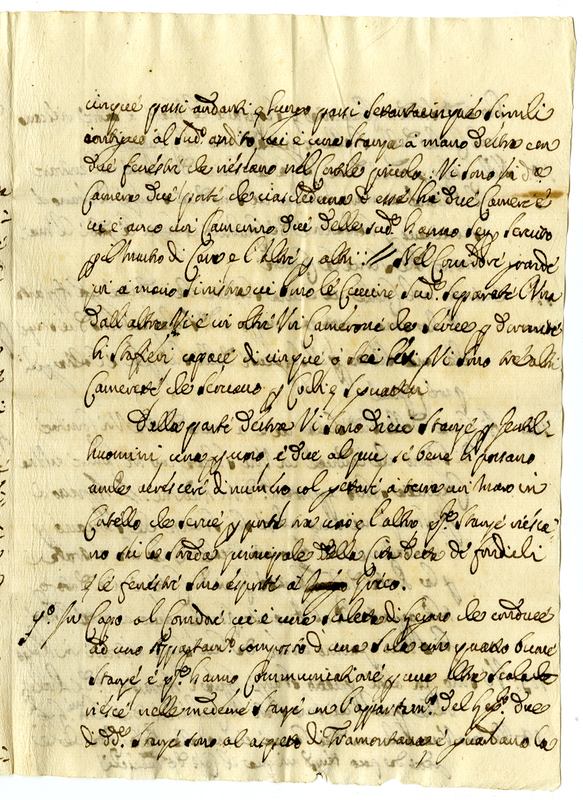 cinque passi andanti e lungo passi settantacinque simili
contiguo al sud.º andito vi è una stanza à mano destra con
due fenestre che riescano nel Cortile piccolo. Vi sono in d.ª
Camera due porte che ciascheduna d'esse hà due Camere e
vi è anco un Camerino due delle sud.e hanno
di Cane e l'altre p altri // Nel Corridore grande
poi a mano sinistra vi sono le Cuccine sud.e separate l'una
dall'altra vi è poi oltre un Camerone che serve p
li staffieri capace di cinque ò sei letti Vi sono tre altri
Camerette che servano p Cochi e sguatteri
Dalla parte destra Vi sono dieci stanze p Gentil=
huomini una p uno e due al più se bene si possano
anche accrescere di numero col
Castello che serve p parte tra uno e l'altro q.e stanze riesca=
no sù la strada principale della Città detta de fondieli
e le fenestre sono esposte à Greco.
p.º In Capo al Corridore vi è una scaletta di legno che conduce
ad uno Appartam.to composto d'una sala con quattro buone
stanze e q.e hanno Communicatione p una altra scala che
riesce nelle medeme stanze in l'appartam.to del due
di dd.e stanze sono al aspetto di Tramontana e guardano la